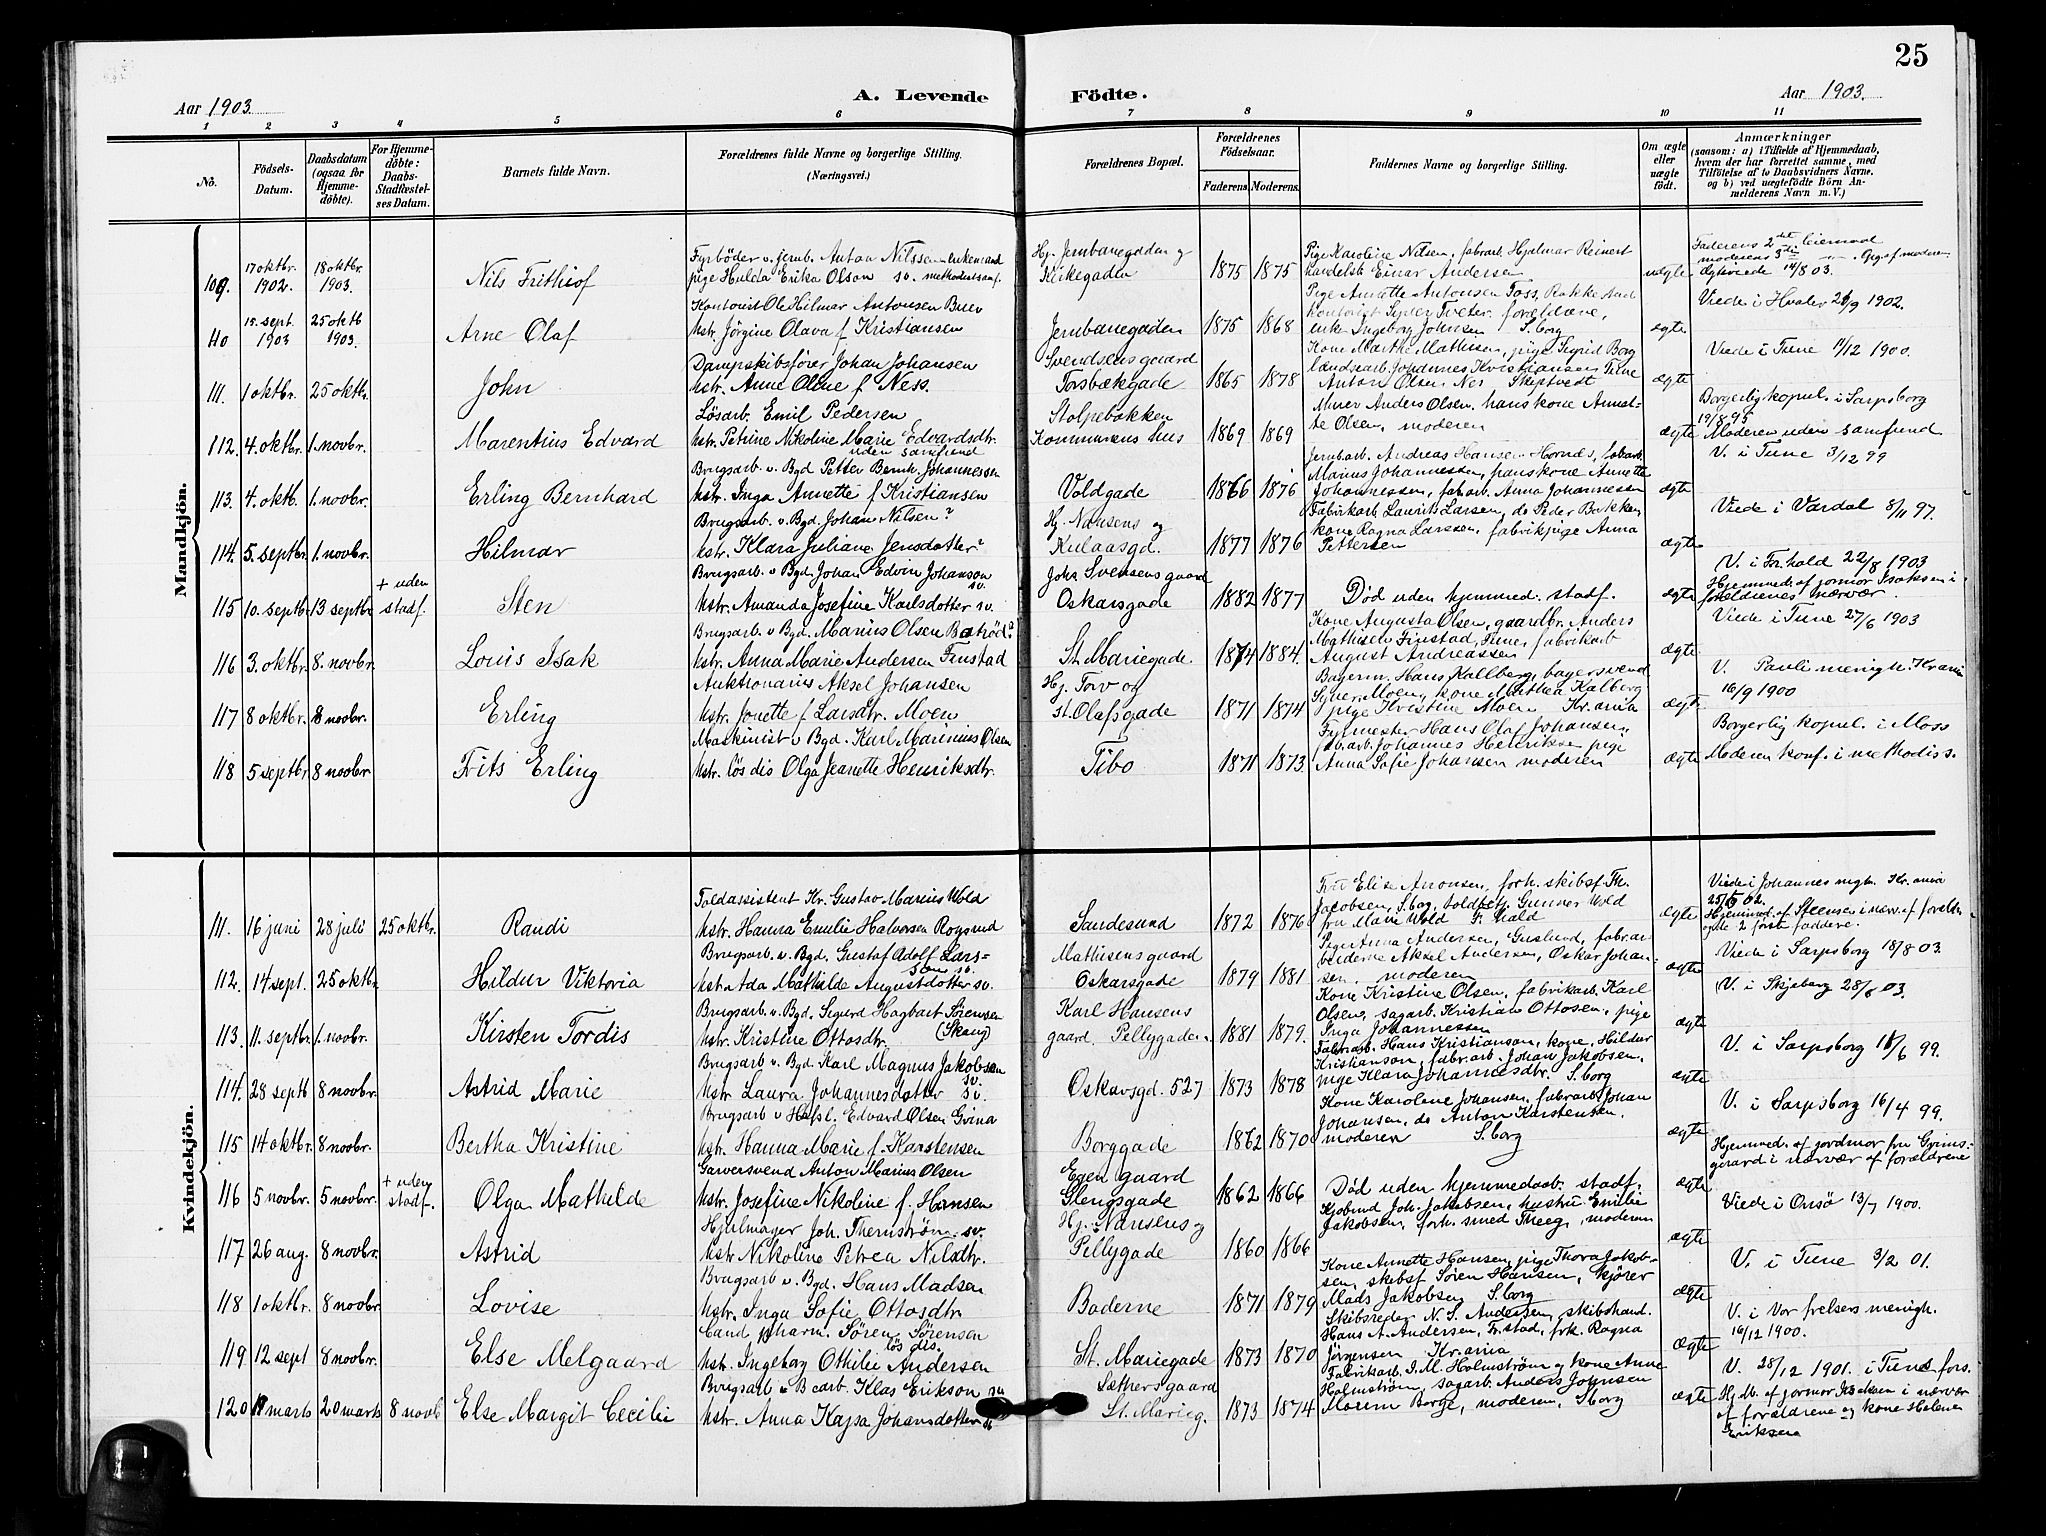 25
Aar 1903.
A. Levende
Födte.
Aar 1903.
1 2 3 4 5 6 7 8 9 10 11
No.
Födsels-
Datum.
Daabsdatum
(ogsaa for
Hjemme-
döbte).
For Hjemme-
döbte:
Daabs-
Stadfæstel-
ses Datum.
Barnets fulde Navn.
Forældrenes fulde Navne og borgerlige Stilling.
(Næringsvei.)
Forældrenes Bopæl.
Forældrenes
Födselsaar.
Faderens. Moderens.
Faddernes Navne og borgerlige Stilling.
Om ægte
eller
uægte
födt.
Anmærkninger
(saasom: a) i Tilfælde af Hjemmedaab,
hvem der har forrettet samme, med
Tilföielse af to Daabsvidners Navne.
og b) ved uegtefödte Börn An-
melderens Navn m. V.)
Mandkjön.
109. 17 oktbr. 1902. 18 oktbr. 1903. Nils Frithjof
Fyrböder v. jernb. Anton Nilssen enkemand
pige Hulda Erika Olson sv. methodistsamf.
Hj. Jernbanegaden og
Kirkegaden
1875 1875
Pige Karoline Nilsen, fabrarb. Hjalmar Reinert
handelsb. Einar Andersen
uægte
Faderens 2det leiermaal
moderens 3die
Ægteviede 14/8 03.
110 15. sept. 1903 25 oktb 1903. Arne Olaf
Kontorist Ole Hilmar Antonsen Buer
hstr. Jörgine Olava f. Kristiansen
Jernbanegaden
1875 1868
Pige Annette Antonsen Foss, Rakkestad
kontorist Syver Tveter, forældrene,
enke Ingeborg Johnsen S.borg
ægte
Viede i Hvaler 21/9 1902.
111. 1 oktbr. 25 oktbr. John
Dampskibsfører Johan Johansen
hstr. Anne Oline f. Ness.
Svendsens gaard
Torsbækgade
1865 1878
Kone Marthe Mathisen, pige Sigrid Borg
landsarb. Johannes Kristiansen Tune
Anton Olsen Nes Skiptvedt
ægte
Viede i Tune 11/12 1900.
112. 4 oktbr. 1. novbr. Marentius Edvard
Løsarb. Emil Pedersen
hstr. Petrine Nikoline Marie Edvardsdtr.
uden samfund
Stolpebakken
Kommunens hus
1869 1869
Murer Anders Olsen, hans kone Annet-
te Olsen, moderen
ægte
Borgerlig kopul. i Sarpsborg
19/8 95
Moderen uden samfund
113. 4. oktb. 1. novbr. Erling Bernhard
Brugsarb. v. Bgd Petter Bernh. Johannessen
hstr. Inga Annette f. Kristiansen
Voldgade
1876 1876
Jernbarb. Andreas Hansen Hornes, fabrark
Marius Johannessen, hans kone Annette
Johannessen, fabarb. Anna Johannessen
ægte
V. i Tune 3/12 99
114. 5. septbr. 1. novbr. Hilmar
Brugsarb. v. Bgd. Johan Nilsen?
hstr. Klara Juliane Jensdatter?
Hj. Nansens og
Kulaasgd.
1877 1876
Fabrikarb. Laurits Larsen, do Peder Bakken
kone Ragna Larssen, fabrikpige Anna
Pettersen
ægte
Viede i Vardal 8/11 97.
115 10. septbr 13 septbr. + uden stadf. Sten
Brugsarb. v Bgd. Johan Edvin Johanson sv.
hstr. Amanda Josefine Karlsdotter sv.
Johs Svensens gaard
Oskarsgade
1882 1877
Död uden hjemmed. stadf.
ægte
V. i Fr.hald 22/8 1903
Hjemmed. af jormor Isaksen i
forældrenes nærvær.
116 3. oktbr. 8. novbr. Louis Isak
Brugsarb. v Bgd. Marius Olsen Batröd?
hstr. Anna Marie Andersen Finstad
St. Mariegade.
1874 1884.
Kone Augusta Olsen, gaardbr. Anders
Mathisen Finstad, Tune, fabrikarb
August Andreassen
ægte
Viede i Tune 27/6 1903
117 8 oktbr. 8 novbr. Erling
Auktionarius Aksel Johansen
hstr. Jonette f. Larsdtr. Moen
Hj. Torv og
St. Olafsgade
1871 1874
Bagerm. Hans Kallberg, bagersvend
Syver Moen, kone Marthea Kalberg
pige Kristine Moen Kr.ania
ægte
V. Pauli menigh. Kr.ania
16/9 1900
118 5 septbr 8 novbr. Frits Erling
Maskinist v Bgd. Karl Marinius Olsen
hstr. lös dis Olga Jeanette Henriksdtr.
Tibo
1871 1873.
Fyrmester Hans Olaf Johansen,
fab.arb. Johannes Henriksen pige
Anna Sofie Johansen moderen
ægte
Borgerlig kopul. i Moss
Moderen konf. i methodiss.
Kvindekjön.
111. 16 juni 28 juli 25 oktbr. Randi
Toldassistent Kr. Gustav Marius Wold
hstr. Hanna Emilie Halvorsen Rogsund
Sandesund
1872 1876
Fru Elise Aronsen, forh. skibsf. Th.
Jacobsen, S.borg, toldbetj. Gunner Wold
fru Marie Wold Fr.hald
ægte
Viede i Johannes mgh. Kr.ania
25/5 02.
Hjemmed. af Steensen i nærv. af foreldr.
og de 2 først faddere.
112. 14 sept. 25 oktbr. Hildur Viktoria
Brugsarb. v. Bgd. Gustaf Adolf Lars-
son sv.
hstr Ada Mathilde Augustdotter sv.
Mathisens gaard
Oskarsgade
1879 1881
Pige Anna Andersen, Greslund, fabr.ar-
beiderne Aksel Andersen, Oskar Johan-
sen, moderen
ægte
Viede i Sarpsborg 18/8 03.
113. 11. septbr. 1. novbr. Kirsten Tordis
Brugsarb. v. Bgd. Sigurd Hagbart Sörensen
(Skaug)
hstr. Kristine Ottosdtr.
Karl Hansens
gaard. Pellygaden.
1881 1879.
Kone Kristine Olsen, fabrikarb. Karl
Olsen, sagarb. Kristian Ottosen, pige
Inga Johannessen
ægte
V. i Skjeberg 28/8 03.
114. 28 septb 8 novbr. Astrid Marie
Brugsarb v. Bgd. Karl Magnus Jakobsen sv.
hstr Laura Johannesdotter sv.
Oskarsgd. 527
1873 1878
Fabrarb. Hans Kristianson, kone, Hildur
Kristianson, fabr.arb. Johan Jakobsen,
pige Klara Johannesdtr. S.borg
ægte
V. i Sarpsborg 11/6 99.
115 14 oktbr. 8 novbr. Bertha Kristine
Brugsarb v Hafsl. Edvard Olsen Grina
hstr. Hanna Marie f. Karstensen
Borggade
1862 1870
Kone Karolene Johansen, fabrarb. Johan
Johansen, do Anton Karstensen,
moderen S.borg
ægte
V. i Sarpsborg 16/4 99.
116 5 novbr. 5 novbr. + uden stadf. Olga Mathilde
Garversvend Anton Marius Olsen
hstr. Josefine Nikoline f. Hansen
Egen gaard
Glengsgade
1862 1866
Död uden hjemmedaab. stadf.
ægte
Hjemmed. af jordmor fru Grims-
gaard i nærvær af forældrene
117 26 aug. 8 novbr. Astrid
Hjulmager Joh. Thernström sv.
hstr Nikoline Petrea Nilsdtr.
Hj. Nansens og
Pellygade
1860 1866
Kjøbmd Joh. Jakobsen, hustru Emilie
Jakobsen, forh. smed Theeg, moderen
ægte
Viede i Onsö 13/7 1900.
118 1 oktbr. 8 novbr. Lovise
Brugsarb v. Bgd. Hans Madsen
hstr. Inga Sofie Ottosdtr
Baderne
1871 1879
Kone Annette Hansen, pige Thora Jakob-
sen, skibsf Sören Hansen, kjører
Mads Jakobsen S.borg
ægte
V. i Tune 3/2 01.
119 12 sept 8 novbr. Else Melgaard
Cand pharm. Sören Sörensen
lös dis.
hstr. Ingeborg Othilie Andersen
St. Mariegade
1873 1870
Skibsreder N. S. Andersen, skibshand.
Hans A. Andersen, Fr.stad, frk. Ragna
Jörgensen Kr.ania
ægte
V. i Vor frelsers menigh.
16/12 1900.
120 19 marts 20 marts 8 novb Else Margit Cecilie
Brugsarb v B carb. Klas Erikson sv
hstr. Anna Kajsa Johansdotter sv
Sæthers gaard
St. Marieg.
1873 1874
Fabriksarb. I. M. Holmström og kone Anna
Holmström, sagarb. Anders Johnsen
Maren Borge, moderen, S.borg
ægte
V. 28/12 1901. i Tunes fors.
Hj.M. af jormor Isaksen i nærvær
af forældrene og kone Helene
Eriksen